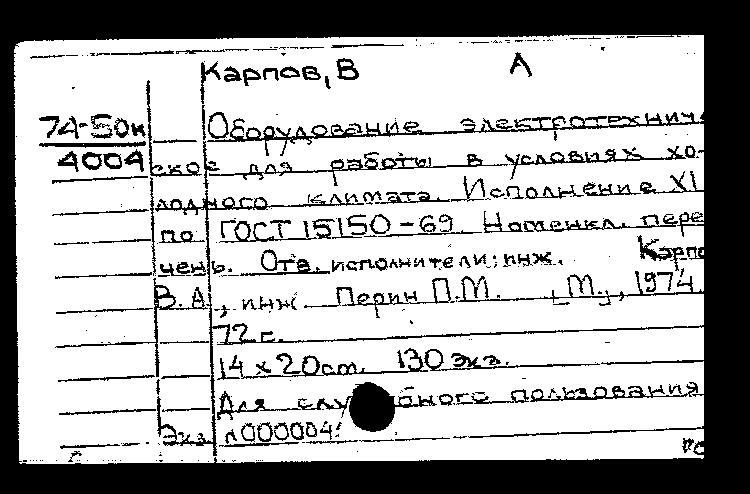 Карпов, В А
74-50к
4004
Оборудование электротехниче
ское для работы в условиях хо-
лодного климата. Исполнение ХЛ
по ГОСТ 15150-69. Номенкл. пере
чень. Отв. исполнители: инж. Карпо
В.А., инж. Перин П.М. [М.], 1974.
72 с.
14 х 20 см. 130 экз.
Для служебного пользования
Экз. 000004